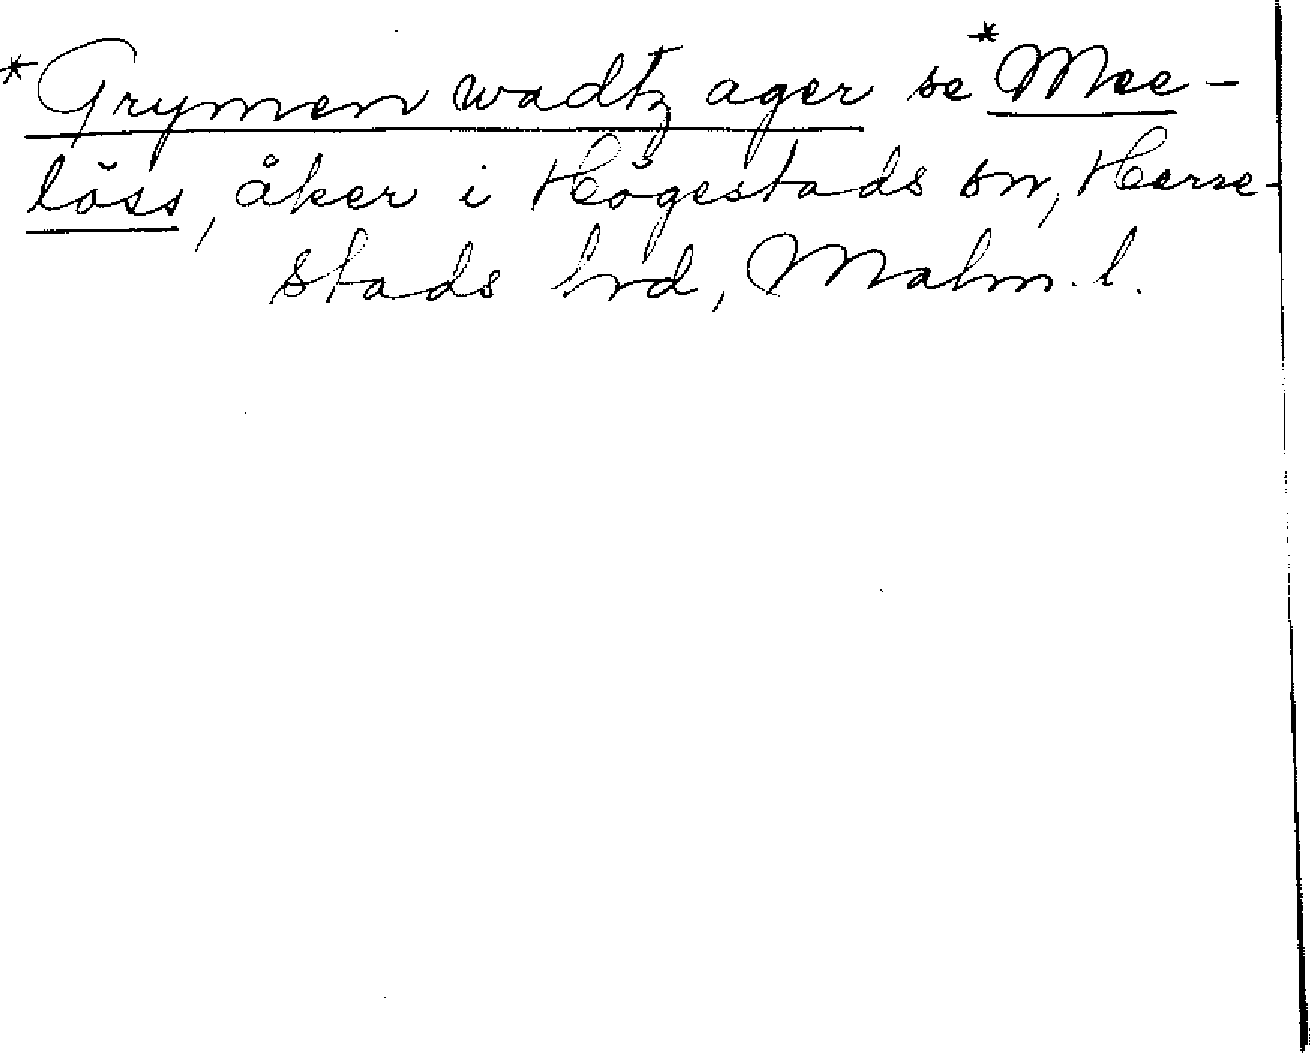 *Grymen wadtz ager se *Mee-
löss, åker i Högestads sn, Herre-
stads hrd, Malm. l.